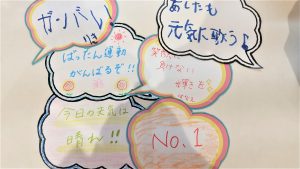 ガンバレ!!
あしたも
元気に歌う♪
ばったん運動
がんばるぞ!!
負けない
輝きを
今日の天気は
晴れ!!
No.1